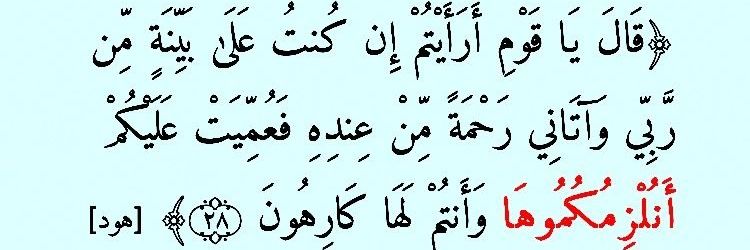 ﴿قَالَ يَا قَوْمِ أَرَأَيْتُمْ إِن كُنتُ عَلَىٰ بَيِّنَةٍ مِّن
رَّبِّي وَآتَانِي رَحْمَةً مِّنْ عِندِهِ فَعُمِّيَتْ عَلَيْكُمْ
أَنُلْزِمُكُمُوهَا وَأَنتُمْ لَهَا كَارِهُونَ ﴿٢٨﴾ [هود]